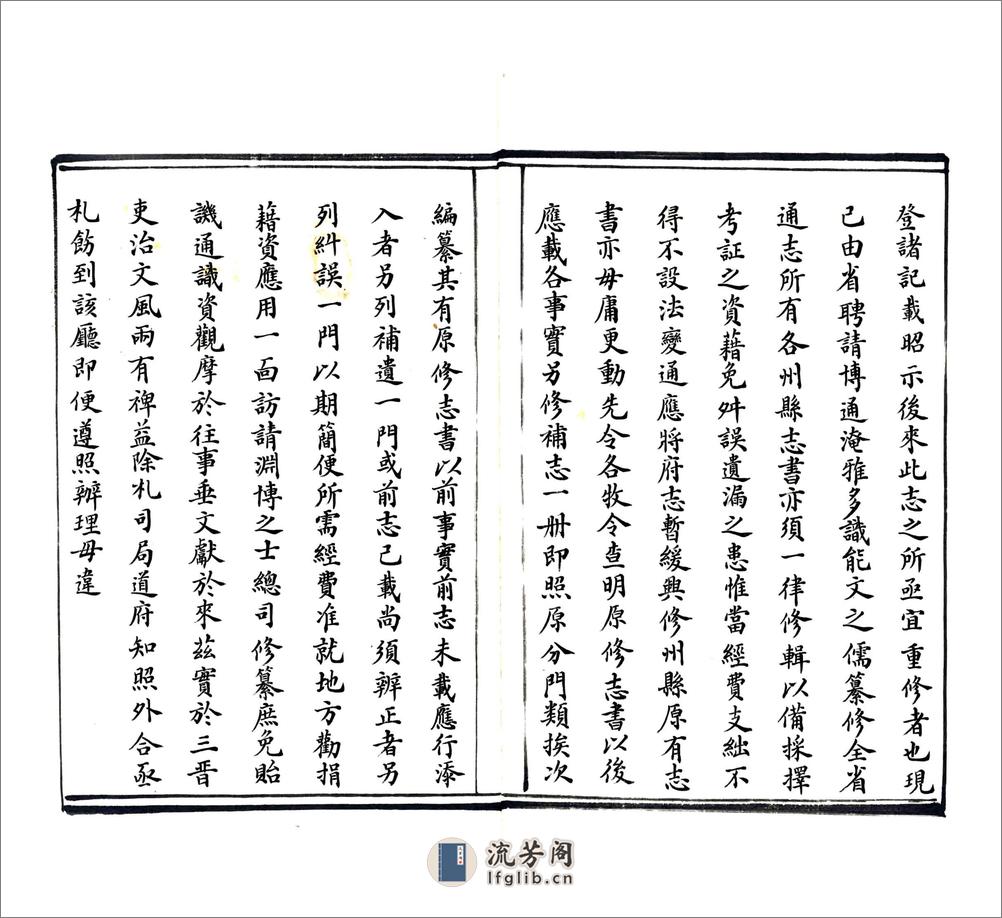 登諸記載昭示後來此志之所亟宜重修者也現
已由省聘請博通淹雅多識能文之儒纂修全省
通志所有各州縣志書亦須一律修輯以備採擇
考証之資藉免舛誤遺漏之患惟當經費支絀不
得不設法變通應將府志暫緩興修州縣原有志
書亦毋庸更動先令各牧令查明原修志書以後
應載各事實另修補志一册即照原分門類挨次
編纂其有原修志書以前事實前志未載應行添
入者另列補遺一門或前志已載尚須辨正者另
列糾誤一門以期簡便所需經費准就地方勸捐
藉資應用一面訪請淵博之士總司修纂庶免貽
譏通識資觀摩於往事垂文獻於來茲實於三晋
吏治文風兩有裨益除札司局道府知照外合亟
札飭到該廳即便遵照辦理毋違
流芳阁
lfglib.cn